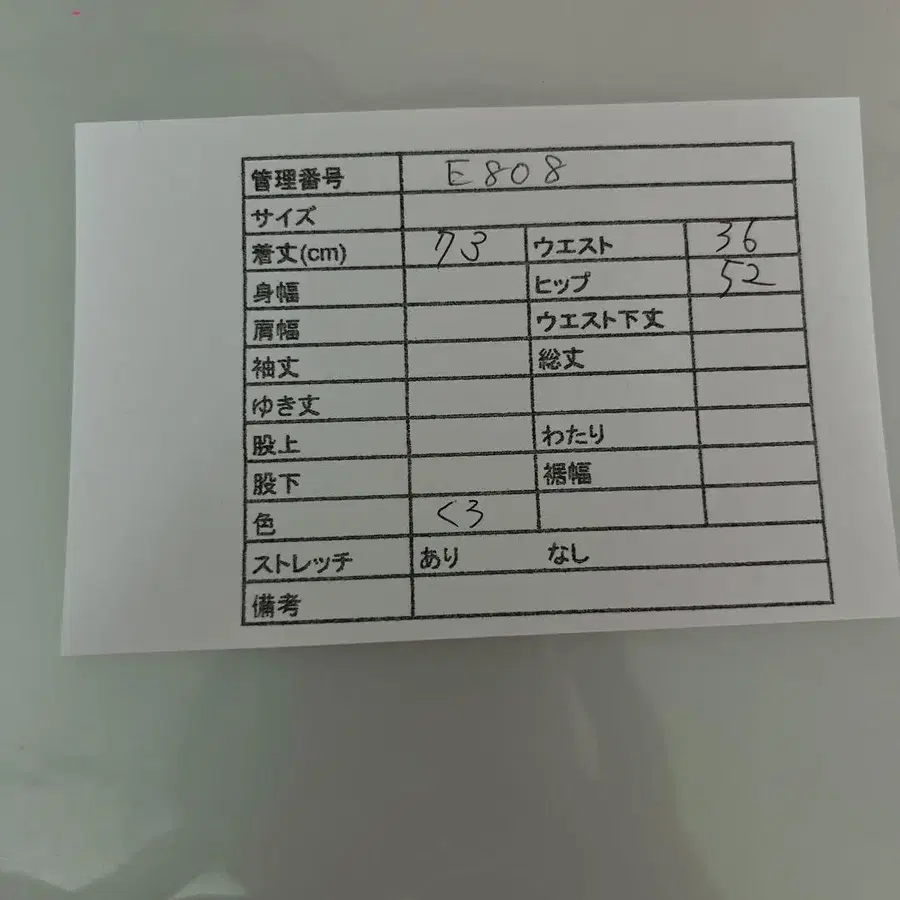 管理番号 E808
サイズ
着丈(cm) 73 ウエスト 36
身幅 ヒップ 52
肩幅 ウエスト下丈
袖丈 総丈
ゆき丈
股上 わたり
股下 裾幅
色 くろ
ストレッチ あり なし
備考